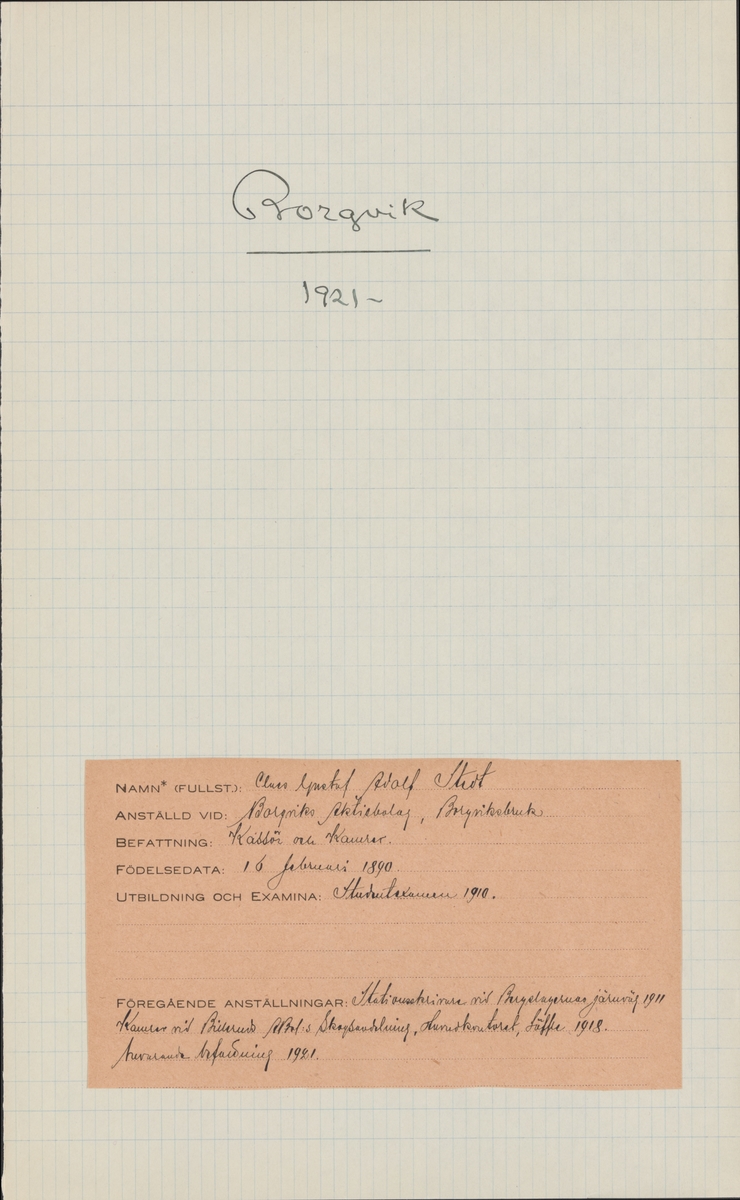 Borgvik
1921-
NAMN* (FULLST.): Claes Gustaf Adolf Stedt
ANSTÄLLD VID: Borgviks Aktiebolag, Borgviksbruk
BEFATTNING: Kassör och Kamrer.
FÖDELSEDATA: 16 februari 1890.
UTBILDNING OCH EXAMINA: Studentexamen 1910.
FÖREGÅENDE ANSTÄLLNINGAR: Stationsskrivare vid Bergslagernas järnväg 1911
Kamrer vid Billeruds ABol:s Skogsavdelning, Huvudkontoret, Säffle 1918.
Nuvarande befattning 1921.